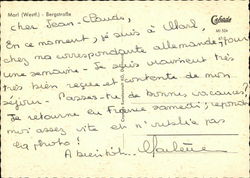 Marl (Westf.) - Bergstraße
Cekade
cher Jean-Claude,
En ce moment, je suis à Marl,
chez ma correspondante allemande, pour
une semaine. Je suis vraiment très
très bien reçue et contente de mon
séjour. Passes-tu de bonnes vacances?
Je retourne en France samedi; répond
moi assez vite et n'oublie pas
la photo!
A bientôt...